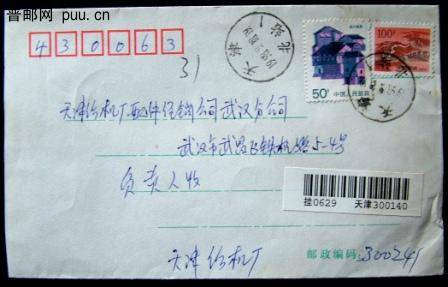 普邮网 puu.cn
430063
31
天津
北站1
50分
中国人民邮政
100分
天津纺机厂配件经销公司武汉分公司
武汉市武昌区铁机路5-4号
负责人收
挂0629 天津300140
天津纺机厂
邮政编码:300241